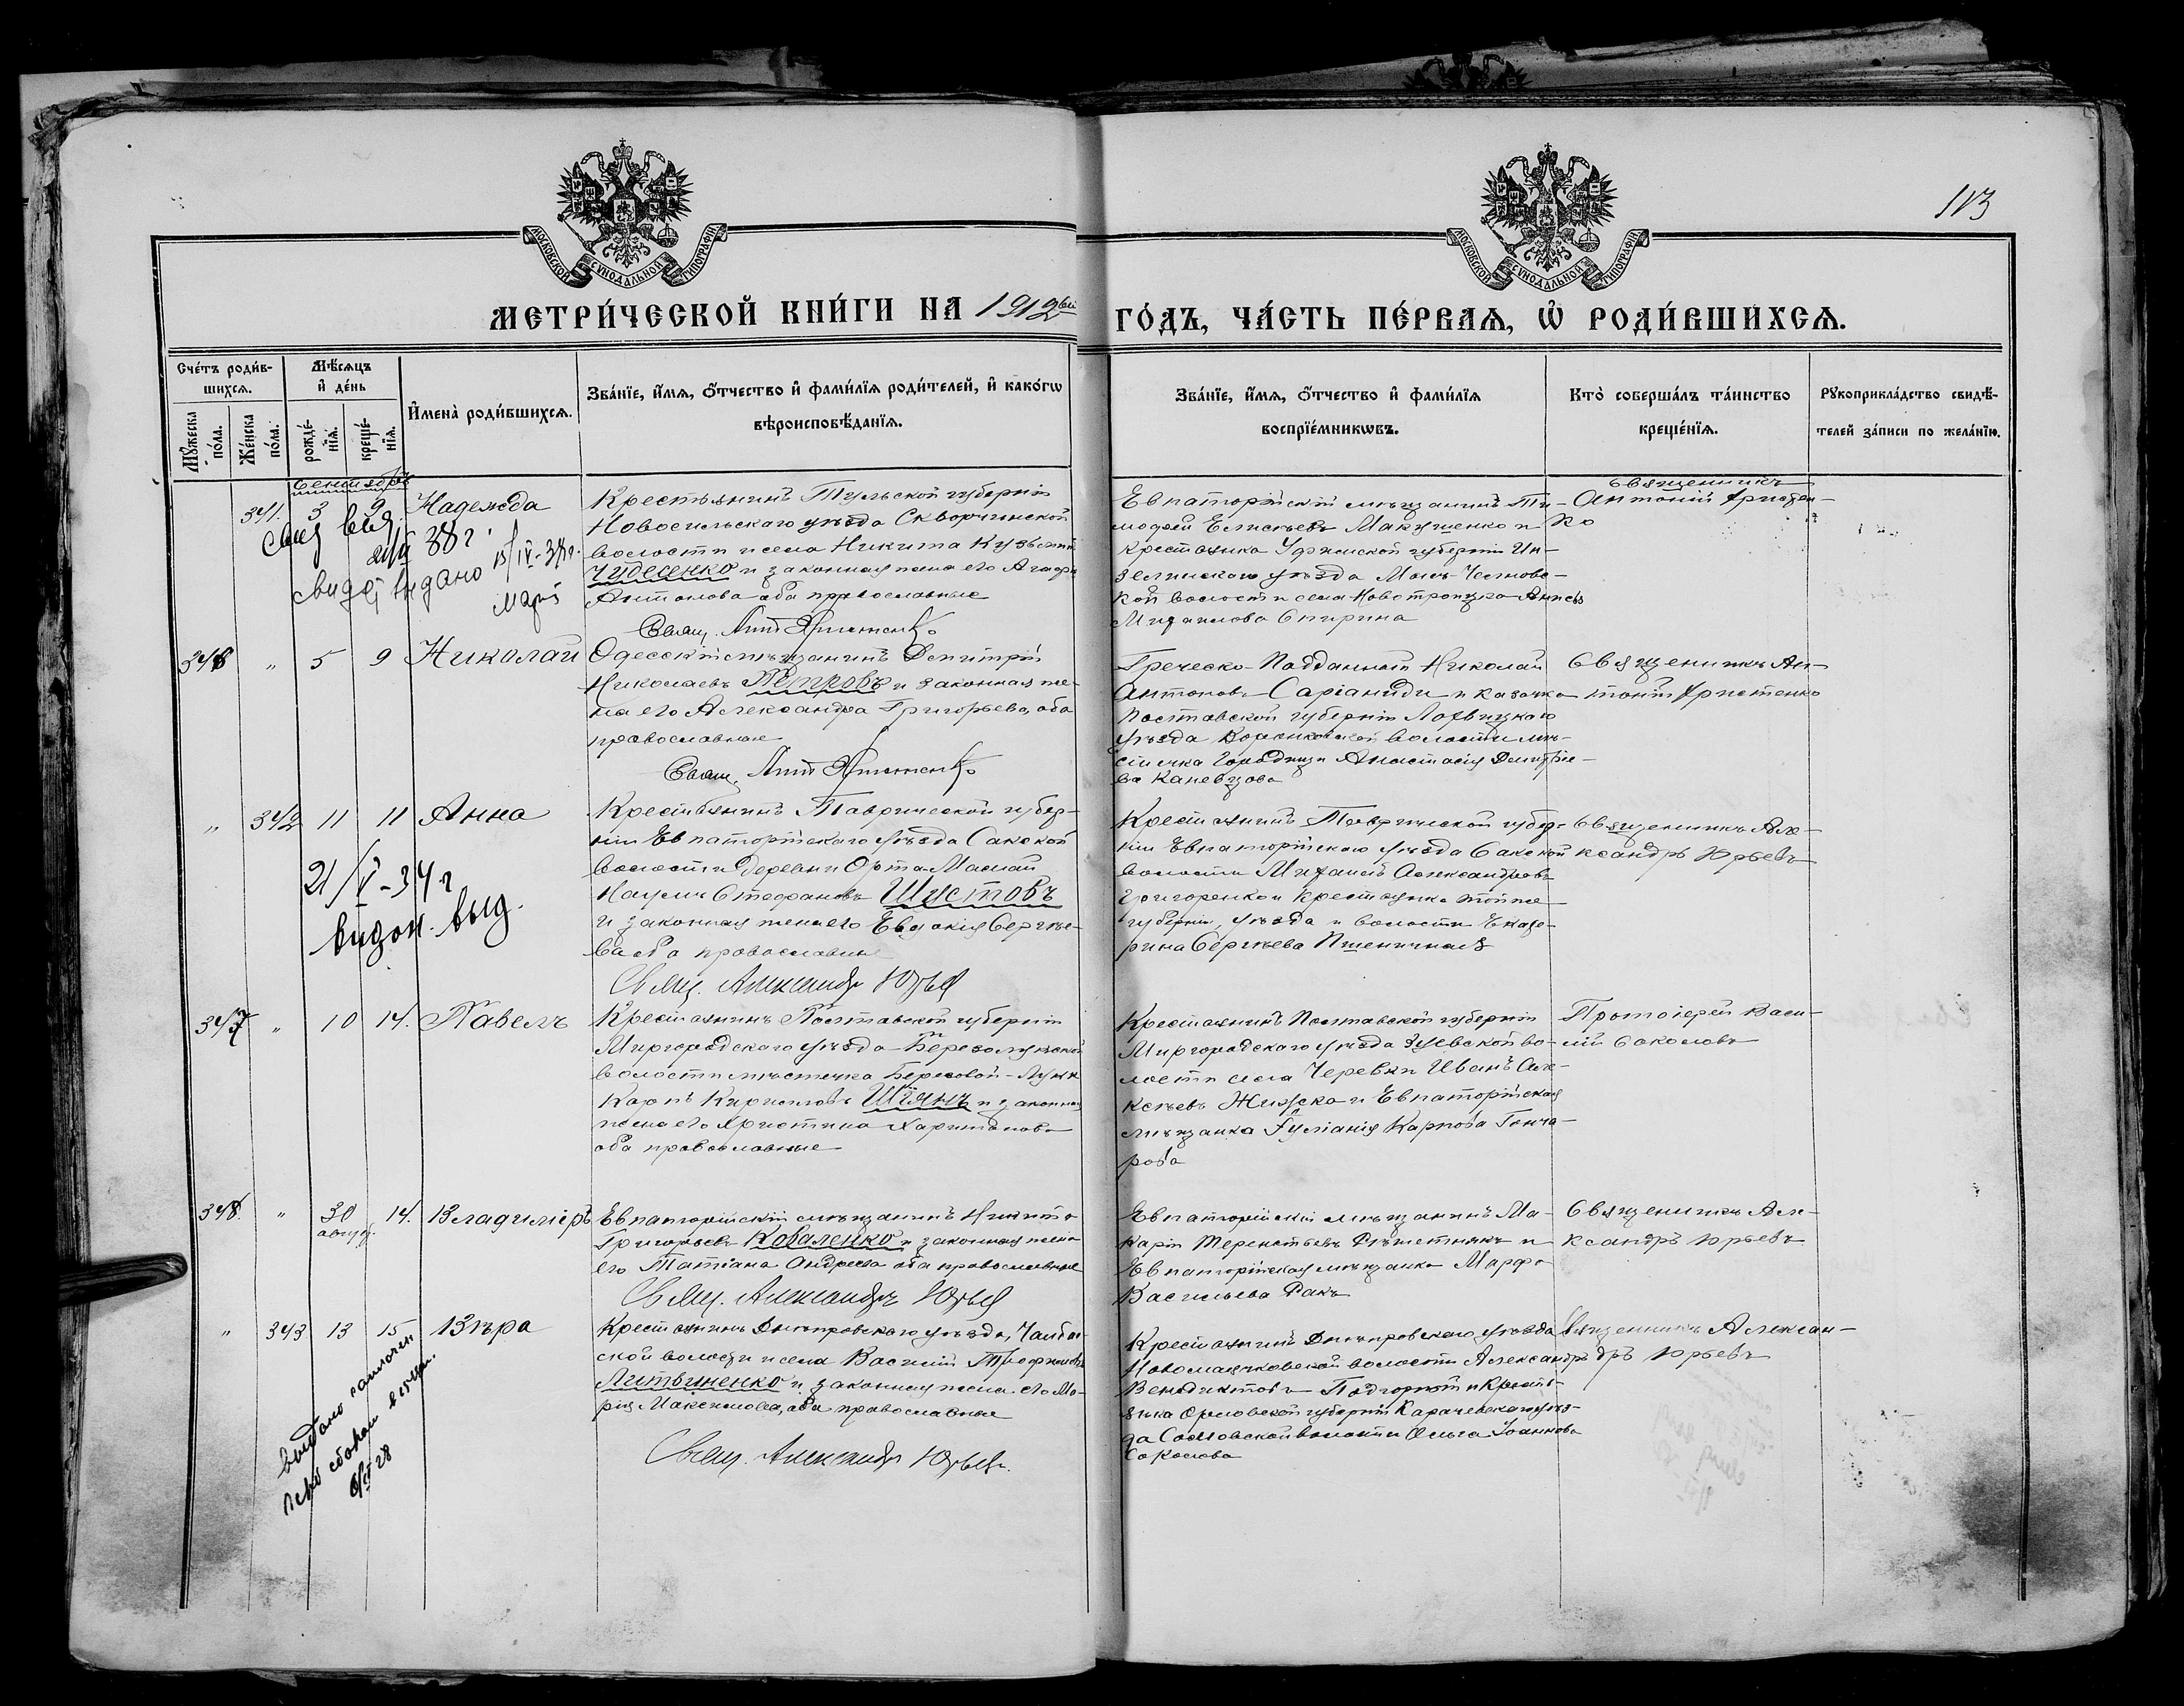 113
МОСКОВСКОЙ СѴНОДАЛЬНОЙ ТИПОГРАФІИ
МОСКОВСКОЙ СѴНОДАЛЬНОЙ ТИПОГРАФІИ
МЕТРИ́ЧЕСКОЙ КНИ́ГИ НА 1912 ГО́ДЪ, ЧА́СТЬ ПЕ́РВАѦ, Ѡ҆ РОДИ́ВШИХСѦ.
Сче́тъ роди́в-
шихсѧ.
Мꙋ́жеска по́ла.
Же́нска по́ла.
Мѣ́сѧцъ
и҆ де́нь
рожде́-
нїѧ.
креще́-
нїѧ.
И҆мена̀ роди́вшихсѧ.
Зва́нїе, и҆́мѧ, ѻ҆́тчество и҆ фами́лїѧ роди́телей, и҆ како́гѡ
вѣроисповѣ́данїѧ.
Зва́нїе, и҆́мѧ, ѻ҆́тчество и҆ фами́лїѧ
воспрїе́мникѡвъ.
Кто̀ соверша́лъ та́инство
креще́нїѧ.
Рꙋкоприкла́дство свидѣ́-
телей за́писи по жела́нїю.
Сентябрь
341. 3 9 Надежда
Крестьянинъ Тульской губерніи
Новосильскаго уѣзда Скворчинской
волости и села Никита Кузьминъ
Чудесенко и законная жена его Агафія
Антонова оба православные
Свящ. Ант Христенко
Евпаторійскій мѣщанинъ Ти-
мофей Елисѣевъ Макушенко и
крестьянка Уфимской губерніи
уѣзда
кой волости села Новотроицка
Михаилова Спирина
Священникъ
Антоній Христен-
ко
38 г.
видет выдано 15/IV-38г.
346 „ 5 9 Николай
Одесскій мѣщанинъ Димитрій
Николаевъ Петровъ и законная же-
на его Александра Григорьева, оба
православные
Свящ. Ант Христенко
Греческо-Подданный Николай
Антоновъ Саріаниди и казачка
Полтавской губерніи Лохвицкаго
уѣзда волости мѣ-
стечка Городищи Анастасія Димитріе-
ва Каневцова
Священникъ Ан-
тоній Христенко
„ 342 11 11 Анна
Крестьянинъ Таврической губер-
ніи Евпаторійскаго уѣзда Сакской
волости деревни Орта-Мамай
Наумъ Стефановъ Шустовъ
и законная жена его Евдокія Сергѣе-
ва оба православные
Свящ. Александръ Юрьев
Крестьянинъ Таврической губер-
ніи Евпаторійскаго уѣзда Сакской
волости Михаилъ Александровъ
Григоренко и крестьянка той же
губерніи, уѣзда и волости Екате-
рина Сергѣева Пшеничная
Священникъ Але-
ксандръ Юрьевъ
21/V-34 г
выд.
347 „ 10 14. Павелъ
Крестьянинъ Полтавской губерніи
Миргородскаго уѣзда Березолуцкой
волости мѣстечка Березовой-Луки
Карпъ Кирилловъ Шіянъ и законная
жена его Христина Харитонова
оба православные
Крестьянинъ Полтавской губерніи
Миргородскаго уѣзда Зуевской во-
лости села Черевки Иванъ Але-
ксѣевъ и Евпаторійская
мѣщанка Іуліанія Карпова Гонча-
рова
Протоіерей Васи-
лій Соколовъ
348. „ 30 14. Владиміръ
август.
Евпаторійскій мѣщанинъ Никита
Григорьевъ Коваленко и законная жена
его Татіана Андреева оба православные
Свящ. Александръ Юрьев
Евпаторійскій мѣщанинъ Ма-
карій Терентьевъ Рѣшетнякъ и
Евпаторійская мѣщанка Марфа
Васильева Ракъ
Священникъ Але-
ксандръ Юрьевъ
„ 343 13 15 Вѣра
Крестьянинъ Днѣпровскаго уѣзда, Чалбас-
ской волости и села Василій Трофимовъ
Литвиненко и законная жена его Ма-
рія Максимова, оба православные
Свящ. Александръ Юрьевъ.
Крестьянинъ Днѣпровскаго уѣзда
Новомаячковской волости Александръ
Венедиктовъ Подгорный и крестья-
нка Орловской губерніи Карачевскаго уѣз-
да волости Ольга Іоаннова
Соколова
Священникъ Алексан-
дръ Юрьевъ
выдано